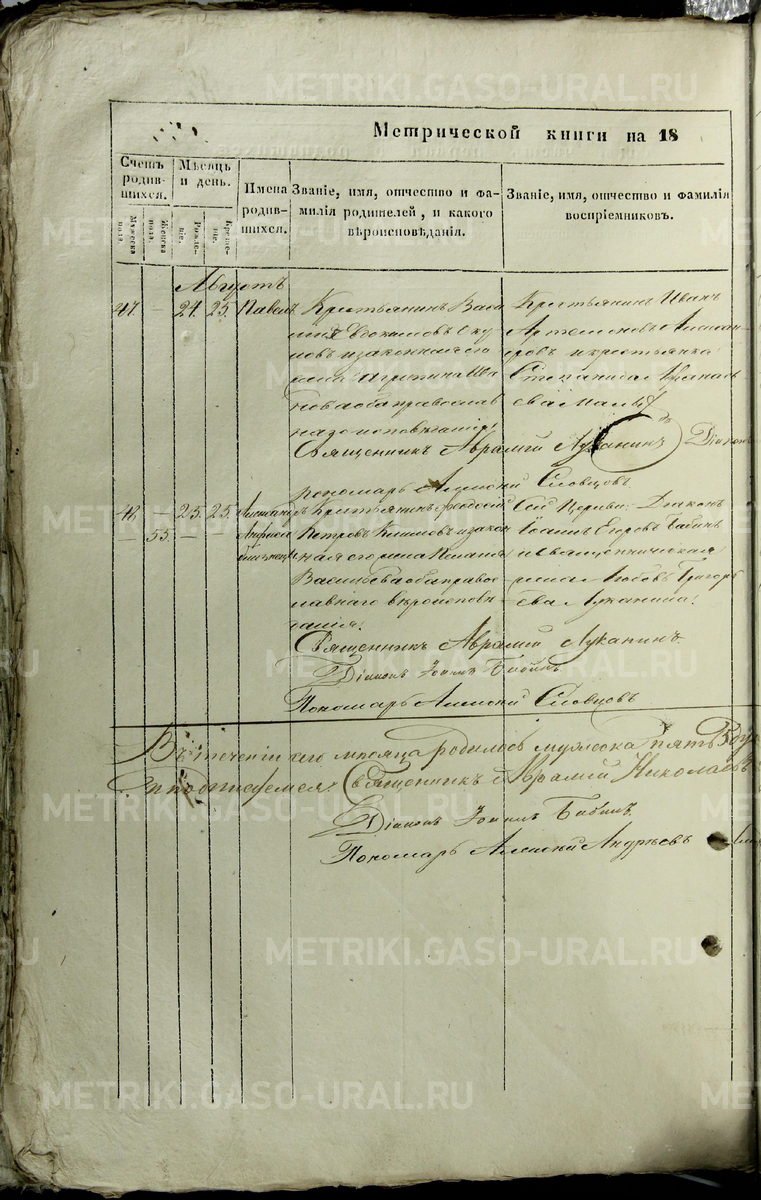 METRIKI.GASO-URAL.RU
Метрической книги на 18
Счетъ родив-шихся.
Мужеска пола.
Женска пола.
Мѣсяцъ и день.
Рожде-ніе.
Креще-ніе.
Имена родив-шихся.
Званіе, имя, отчество и фа-
милія родителей, и какого
вѣроисповѣданія.
Званіе, имя, отчество и фамилія
воспріемниковъ.
Августъ
47. — 24. 25. Павелъ.
Крестьянинъ Васи
лій Евдокимовъ
новъ и законная его
жена
нова оба православ
наго исповѣданія.
Крестьянинъ Иванъ
Артемоновъ
ровъ и крестьянка
Степанида
ева
Священникъ Аврамій Луканинъ Діаконъ
Пономарь Алексій Словцовъ
48. — 25. 25.
— 55. — — Анфиса
близнецы
Крестьянинъ
Петровъ и закон
ная его жена
Васильева оба право
славнаго вѣроисповѣ
данія.
Сей Церкви Діаконъ
Іоаннъ Егоровъ Бабинъ
и священническая
жена Любовь Григорь
ева Луканина.
Священникъ Аврамій Луканинъ.
Діаконъ Іоаннъ Бабинъ
Пономарь Алексій Словцовъ
Въ теченіи сего мѣсяца родилось мужеска пять
подписуемся Священникъ Аврамій Николаевъ
Діаконъ Іоаннъ Бабинъ.
Пономарь Алексій Андреевъ